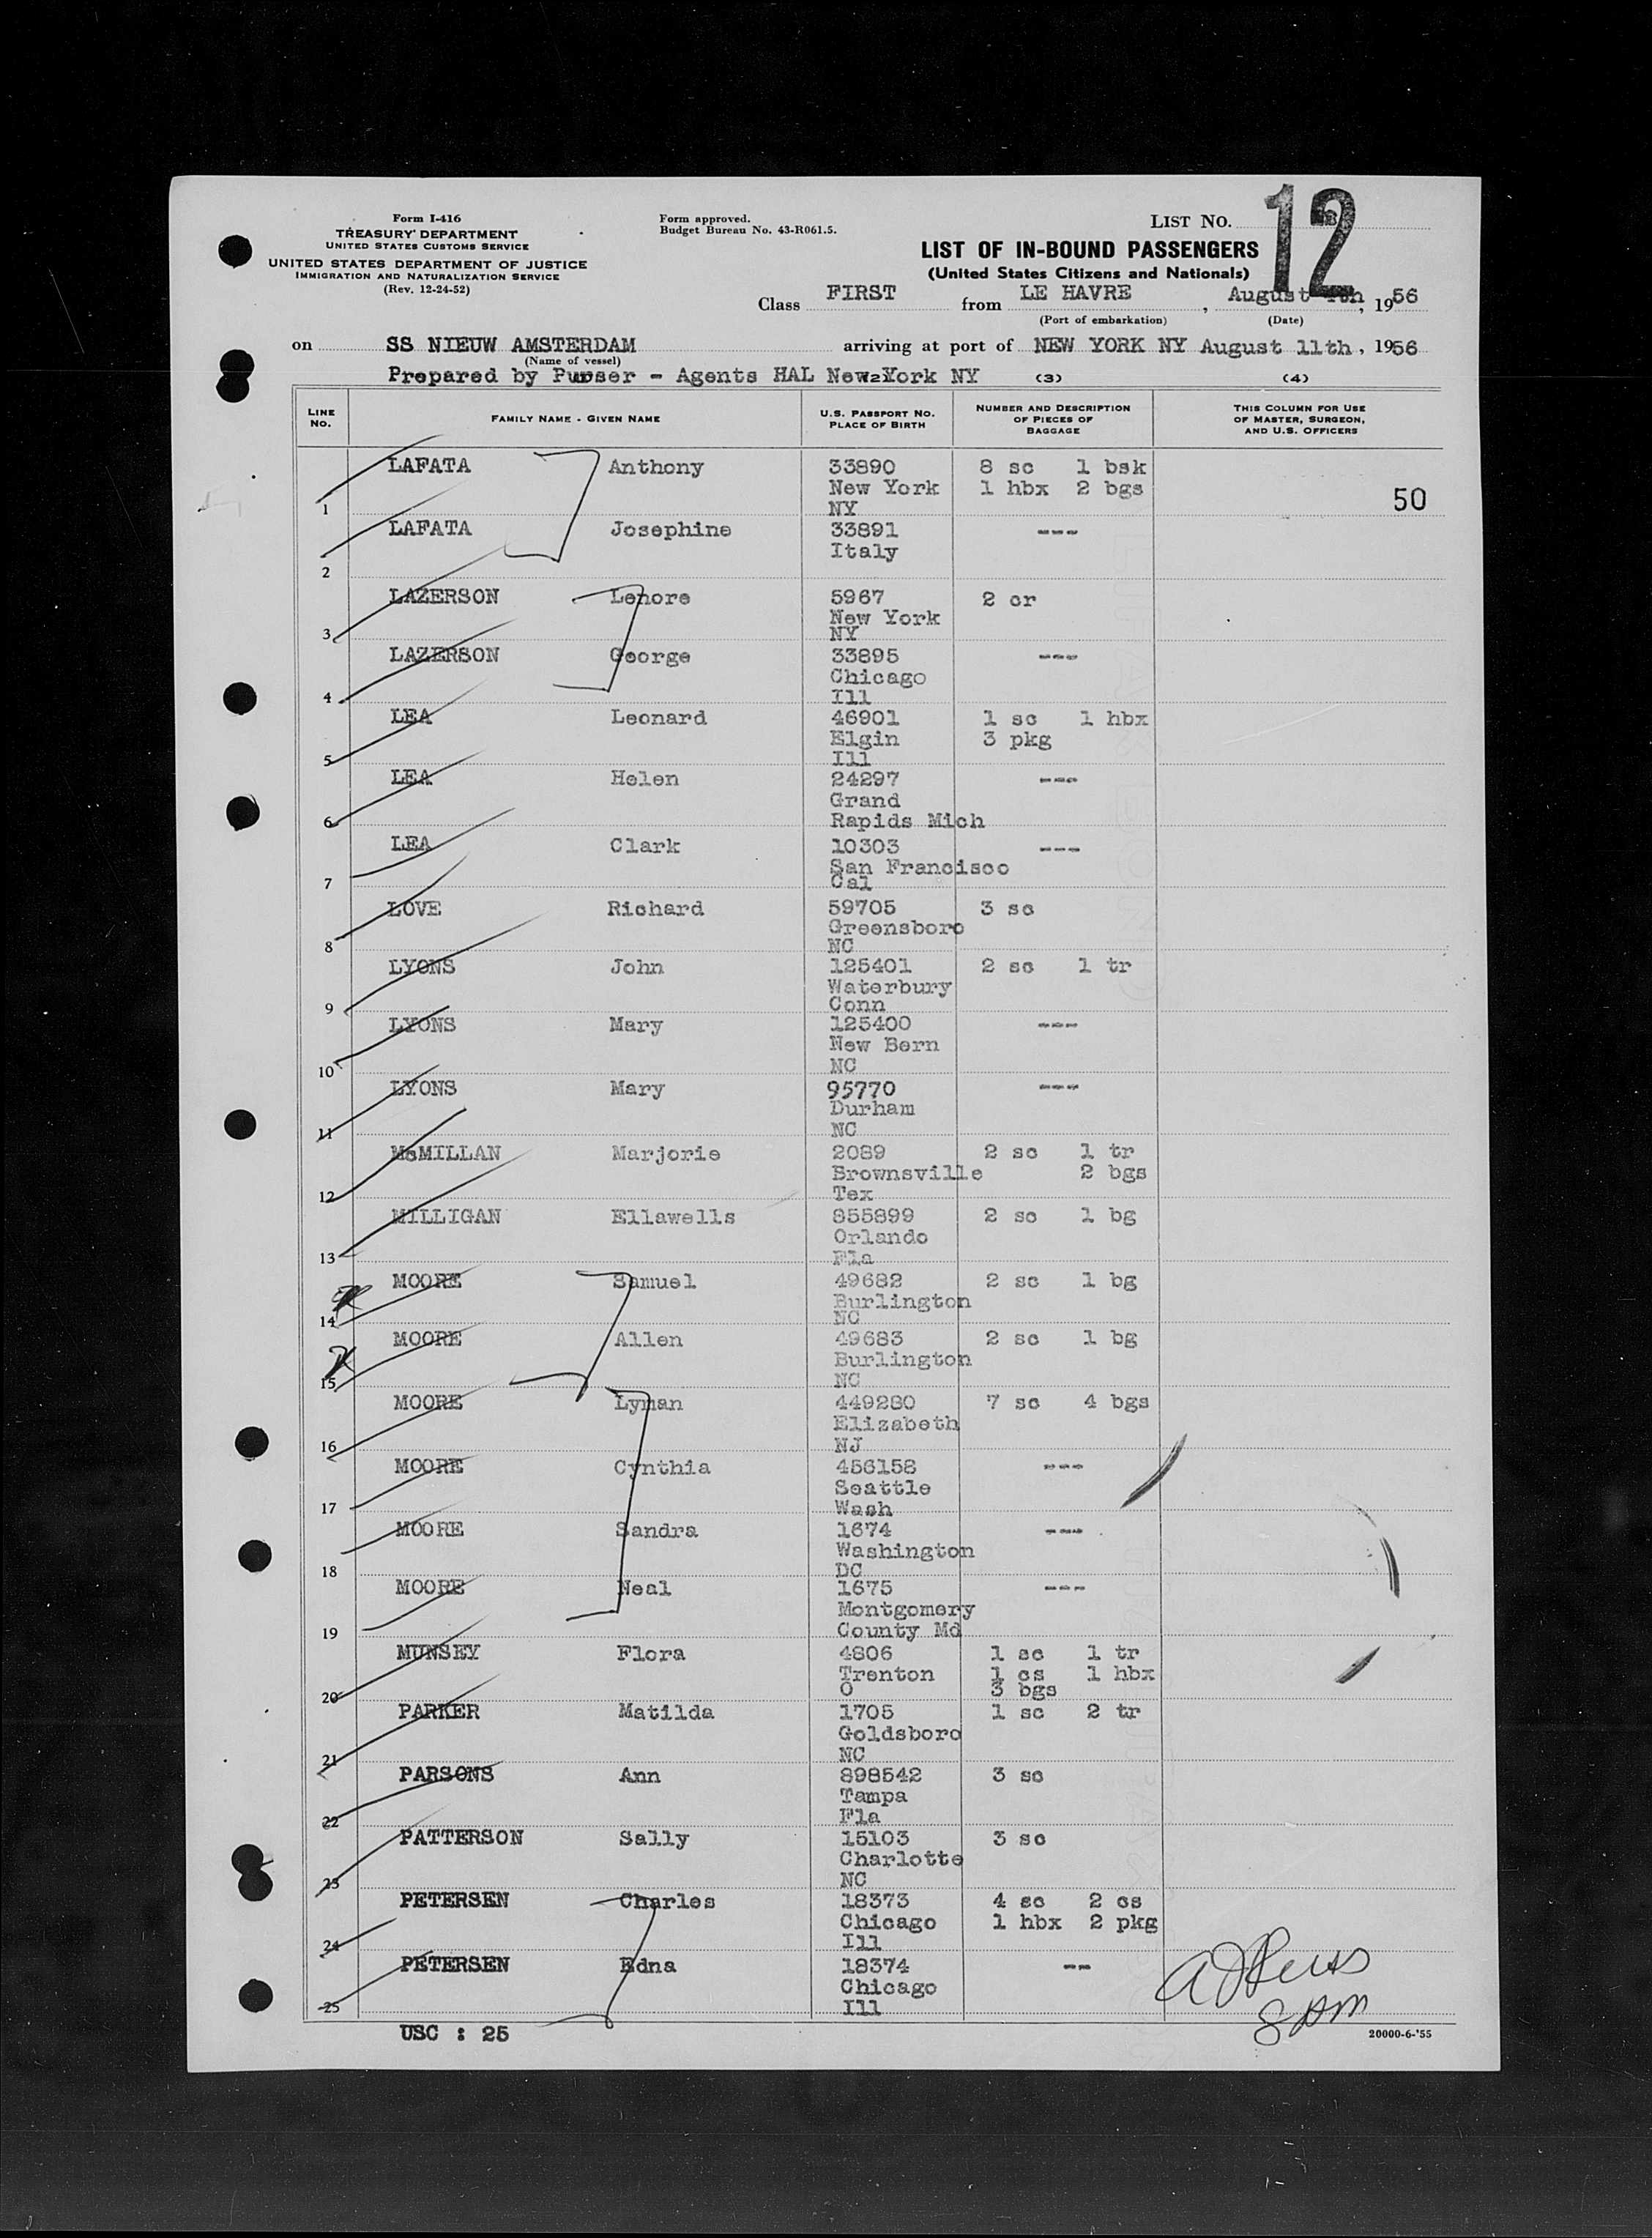 Form I-416
TREASURY DEPARTMENT
UNITED STATES CUSTOMS SERVICE
UNITED STATES DEPARTMENT OF JUSTICE
IMMIGRATION AND NATURALIZATION SERVICE
(Rev. 12-24-52)
Form approved.
Budget Bureau No. 43-R061.5.
LIST NO. 12
LIST OF IN-BOUND PASSENGERS
(United States Citizens and Nationals)
Class FIRST from LE HAVRE, August, 1956
(Port of embarkation) (Date)
on SS NIEUW AMSTERDAM arriving at port of NEW YORK NY August 11th, 1956
(Name of vessel)
Prepared by Purser - Agents HAL New York NY
(2) (3) (4)
LINE NO. FAMILY NAME - GIVEN NAME U.S. PASSPORT NO. PLACE OF BIRTH NUMBER AND DESCRIPTION OF PIECES OF BAGGAGE THIS COLUMN FOR USE OF MASTER, SURGEON, AND U.S. OFFICERS
LAFATA Anthony 33890 8 sc 1 bsk
New York 1 hbx 2 bgs 50
1 NY
LAFATA Josephine 33891 ---
Italy
2
LAZERSON Lenore 5967 2 cr
New York
3 NY
LAZERSON George 33895 ---
Chicago
4 Ill
LEA Leonard 46901 1 sc 1 hbx
Elgin 3 pkg
5 Ill
LEA Helen 24297 ---
Grand
6 Rapids Mich
LEA Clark 10303 ---
San Francisco
7 Cal
LOVE Richard 59705 3 sc
Greensboro
8 NC
LYONS John 125401 2 sc 1 tr
Waterbury
9 Conn
LYONS Mary 125400 ---
New Bern
10 NC
LYONS Mary 95770 ---
Durham
11 NC
McMILLAN Marjorie 2089 2 sc 1 tr
Brownsville 2 bgs
12 Tex
MILLIGAN Ellawells 855899 2 sc 1 bg
Orlando
13 Fla
MOORE Samuel 49682 2 sc 1 bg
Burlington
14 NC
MOORE Allen 49683 2 sc 1 bg
Burlington
15 NC
MOORE Lyman 449280 7 sc 4 bgs
Elizabeth
16 NJ
MOORE Cynthia 456158 ---
Seattle
17 Wash
MOORE Sandra 1674 ---
Washington
18 DC
MOORE Neal 1675 ---
Montgomery
19 County Md
MUNSEY Flora 4806 1 sc 1 tr
Trenton 1 cs 1 hbx
20 O 3 bgs
PARKER Matilda 1705 1 sc 2 tr
Goldsboro
21 NC
PARSONS Ann 898542 3 sc
Tampa
22 Fla
PATTERSON Sally 15103 3 sc
Charlotte
23 NC
PETERSEN Charles 18373 4 sc 2 cs
Chicago 1 hbx 2 pkg
24 Ill
PETERSEN Edna 18374 --
Chicago
25 Ill
USC : 25
20000-6-'55